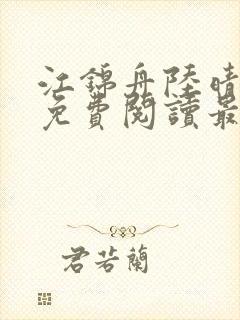 江錦舟陸晴
免費閱讀最
君若蘭